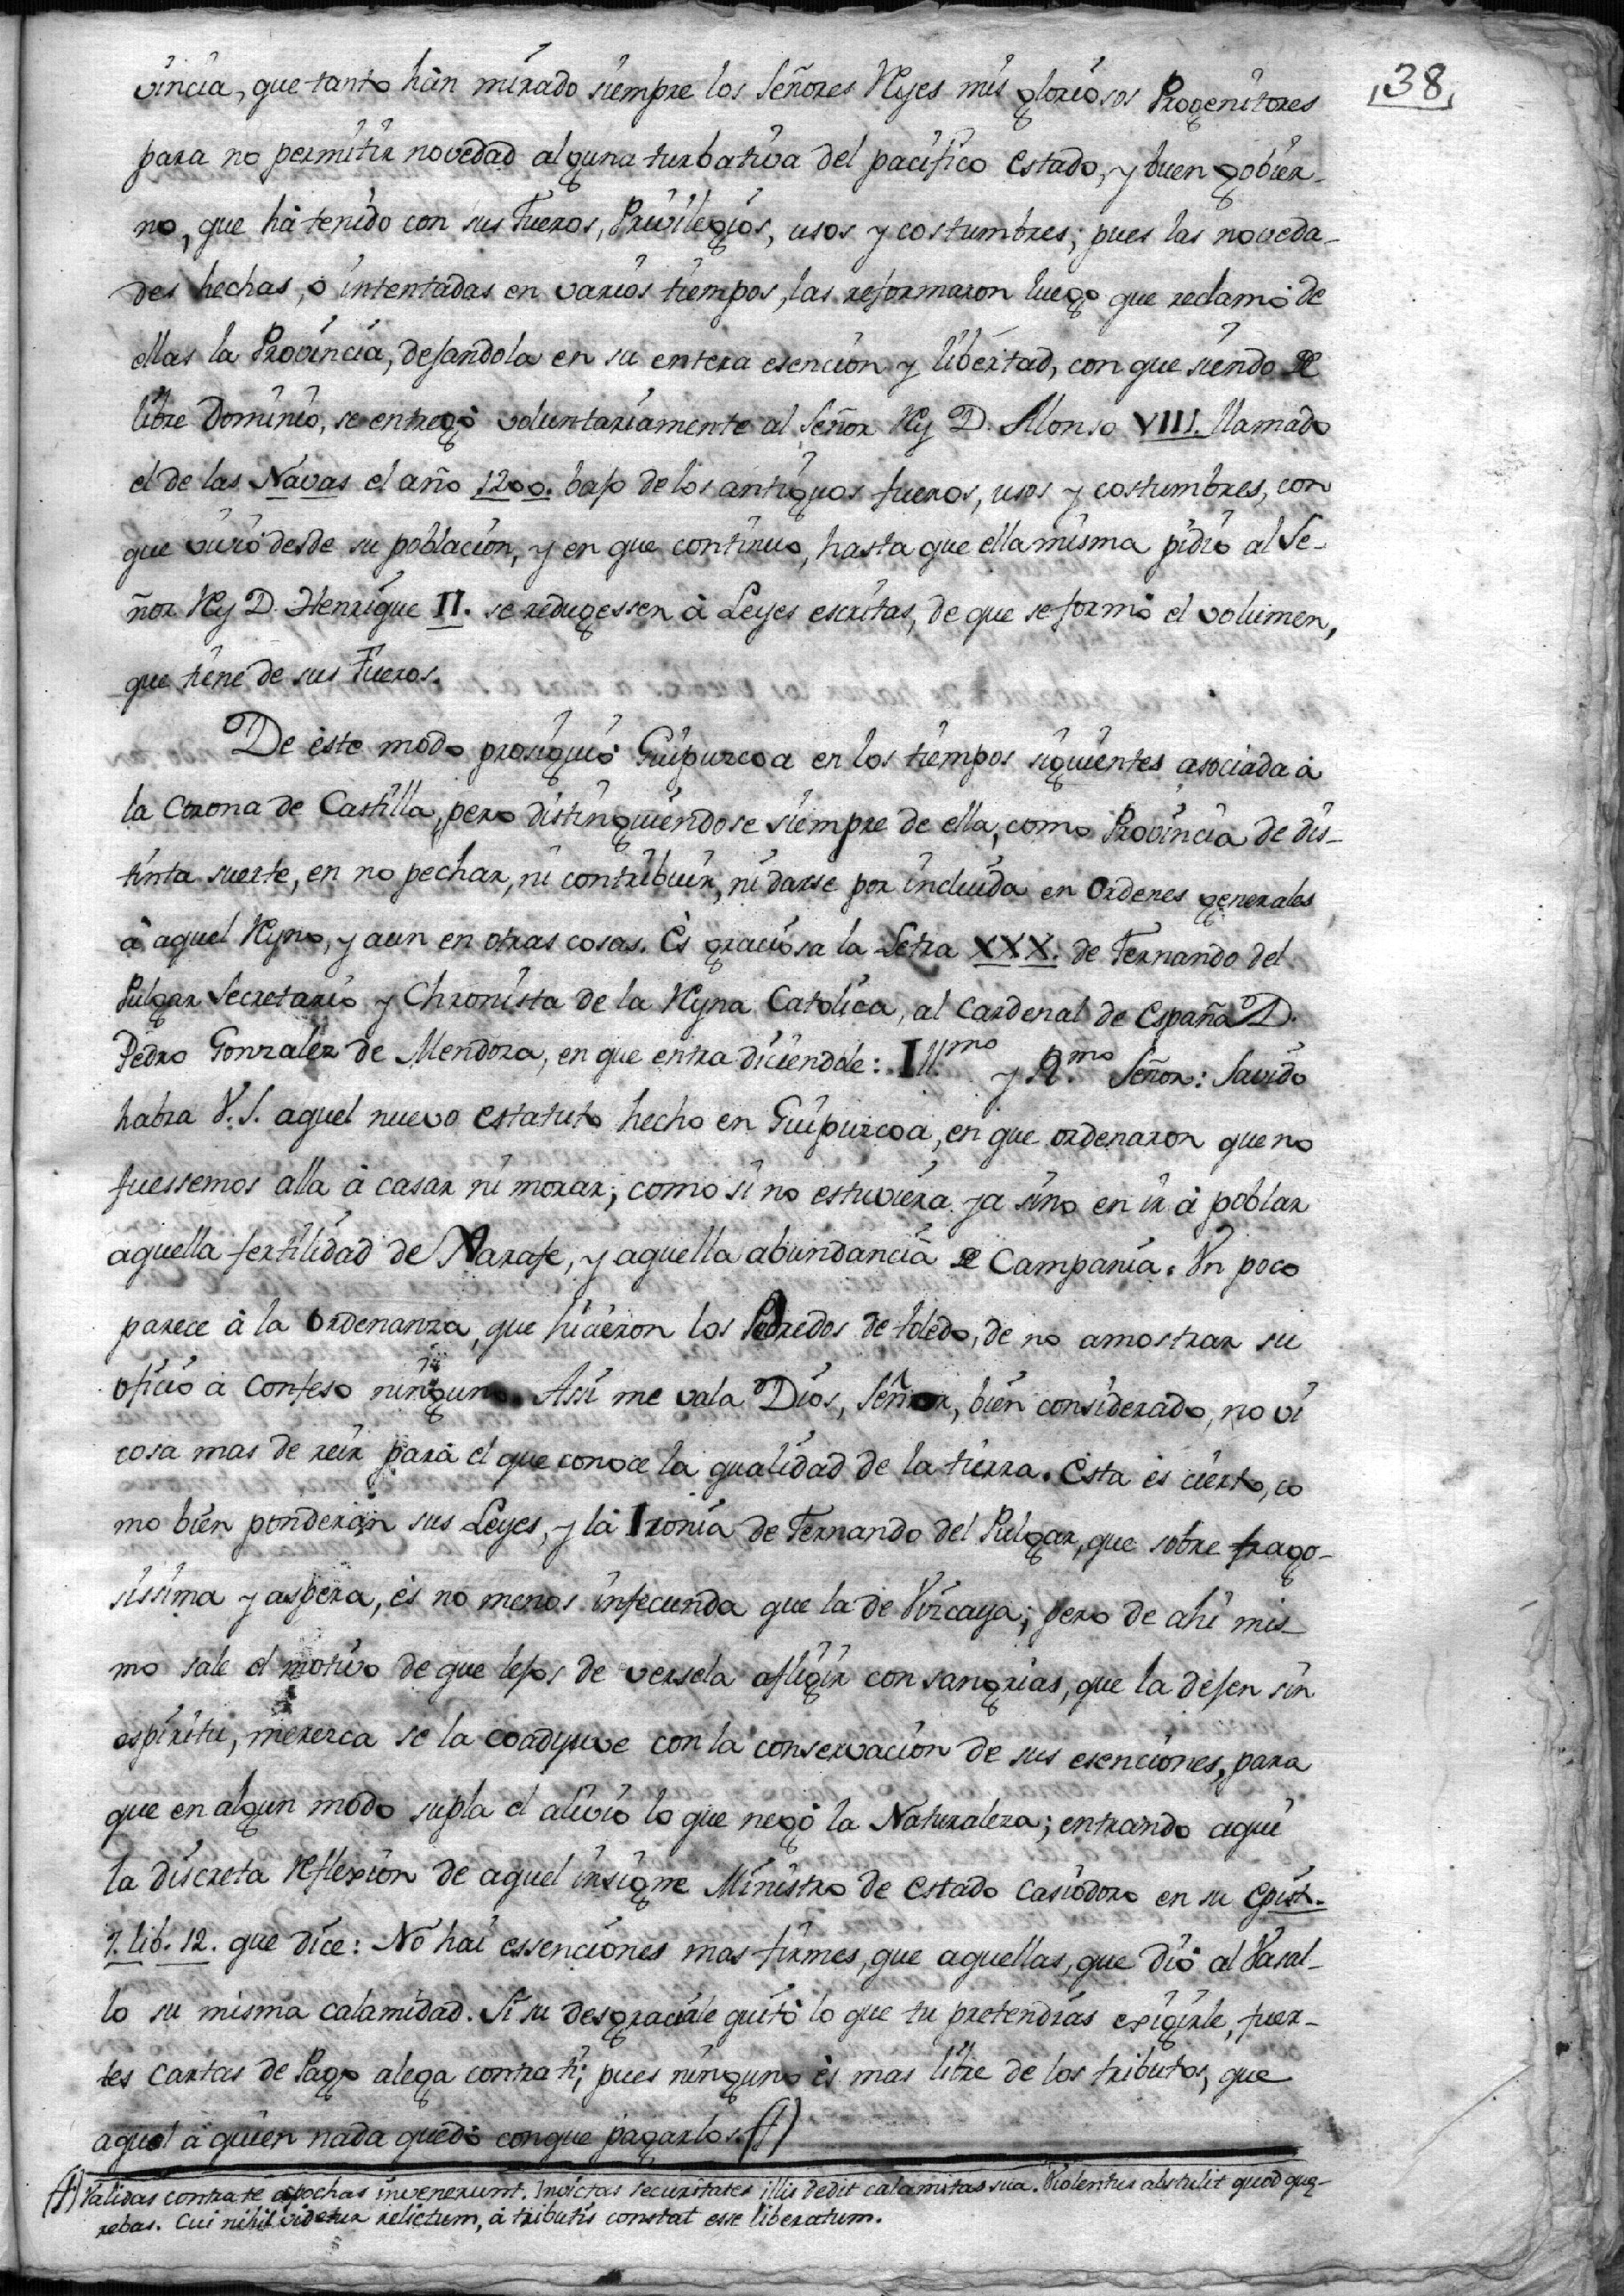 38
vincia, que tanto hàn mirado siempre los Señores Reyes mis gloriosos Progenitores
para no permitir novedad alguna turbativa del pacifico estado, y buen gobier-
no, que hà tenido con sus Fueros, Privilegios, usos y costumbres; pues las noveda-
des hechas, ò intentadas en varios tiempos, las reformaron luego que reclamò de
ellas la Provincia, dejandola en su entera esencion y libertad, con que siendo de
libre Dominio, se entregò voluntariamente al Señor Rey D. Alonso VIII. llamado
el de las Navas el año 1200. bajo de los antiguos fueros, usos y costumbres, con
que viviò desde su poblacion, y en que continuo, hasta que ella misma pidio al Se-
ñor Rey D. Henrique II. se redugessen à Leyes escritas, de que se formò el volumen,
que tiene de sus Fueros.
De este modo prosiguiò Guipuzcoa en los tiempos siguientes asociada à
la Corona de Castilla, pero distinguiendose siempre de ella, como Provincia de dis-
tinta suerte, en no pechar, ni contribuir, ni darse por incluida en Ordenes generales
à aquel Reyno, y aun en otras cosas. Es graciosa la Letra XXX. de Fernando del
Pulgar Secretario y Chronista de la Reyna Catolica, al Cardenal de España D.
Pedro Gonzalez de Mendoza, en que entra diciendole: Ill.mo y R.mo Señor: Savido
habra V. S. aquel nuevo estatuto hecho en Guipuzcoa, en que ordenaron que no
fuessemos alla à casar ni morar; como si no estuviera ya sino en ir à poblar
aquella fertilidad de Xarafe, y aquella abundancia de Campania. Un poco
parece à la Ordenanza, que hicieron los Pedreros de toledo, de no amostrar su
oficio à Confeso ninguno. Assi me vala Dios, Señor, bien considerado, no vi
cosa mas de reir para el que conoce la qualidad de la tierra. Esta es cierto, co
mo bien ponderan sus Leyes, y la Ironia de Fernando del Pulgar, que sobre frago-
sissima y aspera, es no menos infecunda que la de Vizcaya; pero de ahi mis-
mo sale el motivo de que lejos de versela afligir con sangrias, que la dejen sin
espiritu, merezca se la coadyuve con la conservacion de sus esenciones, para
que en algun modo supla el alivio lo que negò la Naturaleza; entrando aqui
la discreta reflexion de aquel insigne Ministro de Estado Casiodoro en su Epist.
7. lib. 12. que dice: No hai essenciones mas firmes, que aquellas, que diò al Vasal-
lo su misma calamidad. Si su desgracia le quitò lo que tu pretendias exigirle, fuer-
tes Cartas de Pago alega contra ti; pues ninguno es mas libre de los tributos, que
aquel à quien nada quedò con que pagarlos. (f)
(f) Validas contra te apochas invenerunt. Invictas securitates illis dedit calamitas sua. Violentus abstulit quod quæ-
rebas. Cui nihil videtur relictum, à tributis constat esse liberatum.